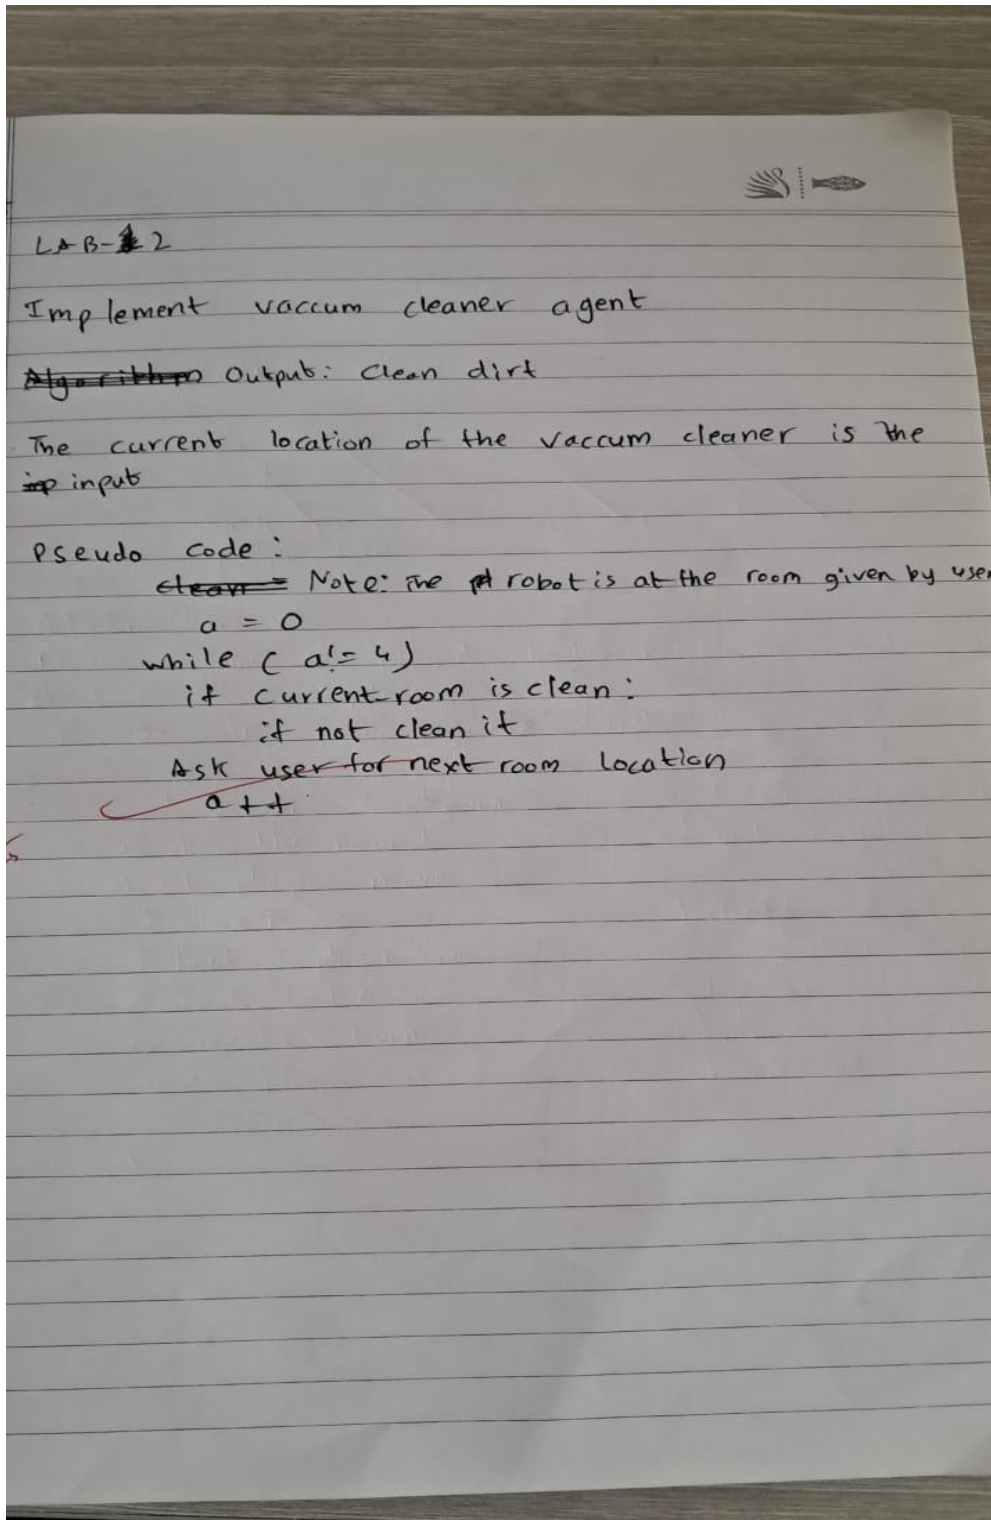 LAB-2
Implement vaccum cleaner agent
Algorithm Output: Clean dirt
The current location of the vaccum cleaner is the
inp input
Pseudo code :
clean = Note: The robot is at the room given by user
a = 0
while ( a != 4)
if current room is clean :
if not clean it
Ask user for next room location
a++